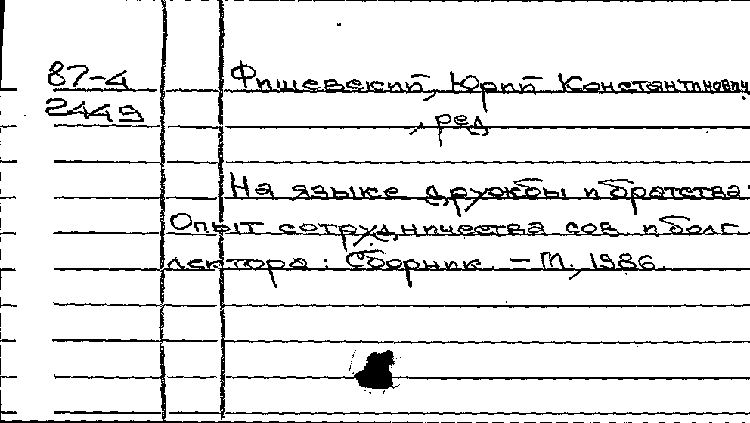 87-4 Фишевский, Юрий Константинович
2449
, ред
На языке дружбы и братства:
Опыт сотрудничества сов. и болг.
лектора: Сборник. - М., 1986.